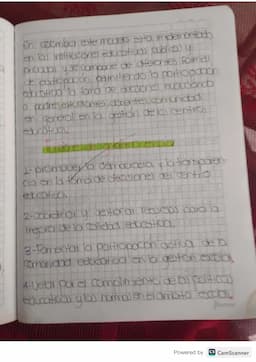 En colombia este modelo esta implementado
en las instituciones educativas publicas y
privadas y se compone de diferentes formas
de participación, permitiendo la participación
educativa la toma de decisiones
a padres, estudiantes, docentes, comunidad
en general en la gestion de los centros
educativos.
1- promover la democracia y la transparen-
cia en la toma de decisiones del centro
educativo.
2- coordinar y gestionar recursos para la
mejora de la calidad educativa.
3- Fomentar la participación activa de la
comunidad educativa en la gestión escolar.
4- Velar por el complimiento de las politicas
educativas y las normas en el ambito escolar.
Powered by CS CamScanner